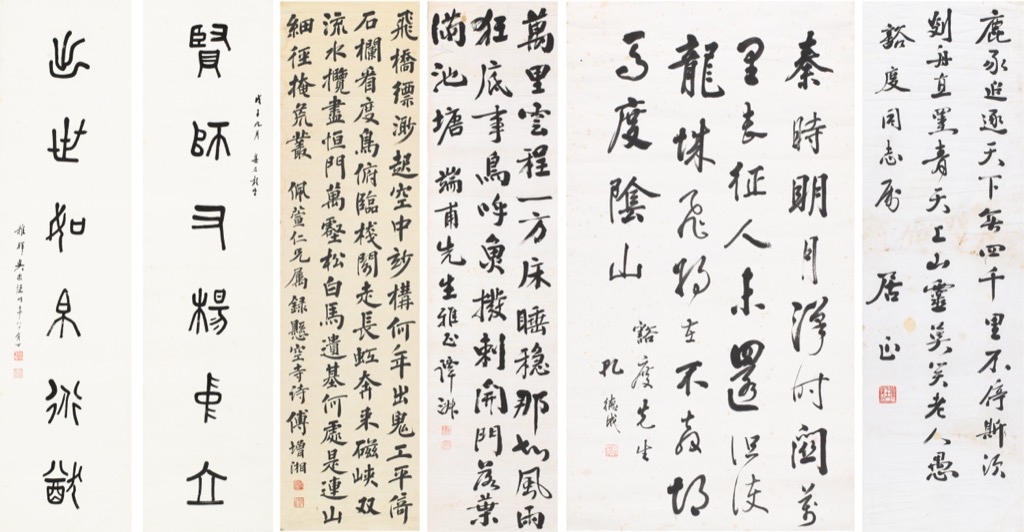 鹿豕追逐天下四千里不停斯
舟直青天上山靈莫笑老人愚
豁度同志属
居正
秦時明月漢時關萬
里長征人未還但使
龍城飛將在不教胡
馬度陰山
豁度先生
孔德成
萬里雲程一方床睡穩那知風雨
狂底事鳥呼魚撥剌開門落葉
滿池塘 端甫先生雅正
飛橋縹渺起空中妙構何年出鬼工平倚
石欄看度鳥俯臨棧閣走長虹奔来磁峽双
流水攬盡恒門萬壑松白馬遺基何處是連山
細徑掩荒叢 佩萱仁兄属録懸空寺诗 傅增湘
戊子九月
賢師又楊立
世如猷